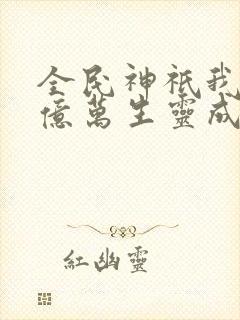 全民神祇我
億萬生靈成
紅幽靈